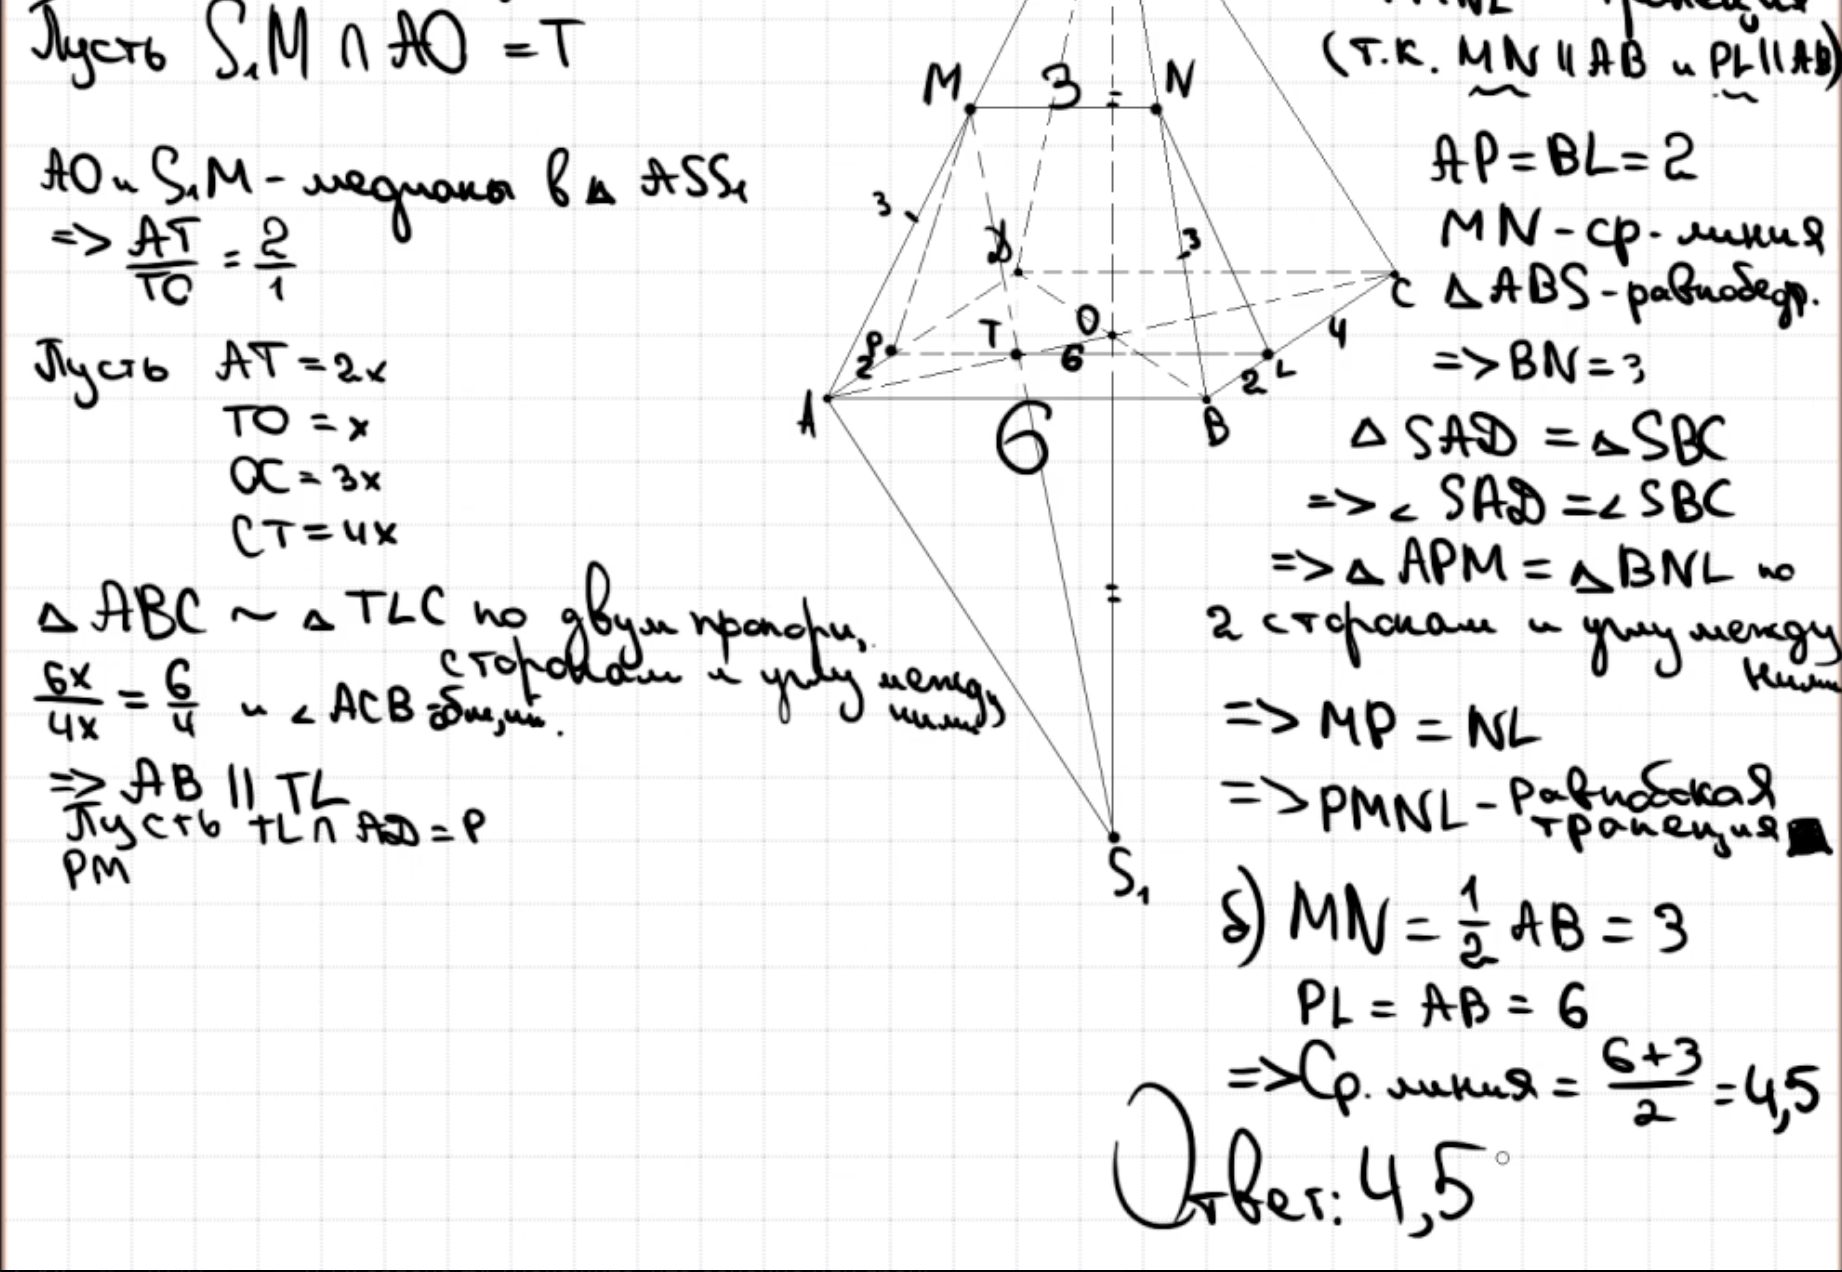 Пусть S₁M ∩ AO = T
AO и S₁M - медианы в △ ASS₁
=> AT/TO = 2/1
Пусть AT = 2x
TO = x
OC = 3x
CT = 4x
△ ABC ~ △ TLC по двум пропорц.
сторонам и углу между
ними
6x/4x = 6/4 и ∠ ACB - общий.
=> AB || TL
Пусть TL ∩ AD = P
PM
M
3
N
3
3
D
C
P
T
O
4
2
6
2
L
A
6
B
S₁
(т.к. MN || AB и PL || AB)
AP = BL = 2
MN - ср. линия
△ ABS - равнобедр.
=> BN = 3
△ SAD = △ SBC
=> ∠ SAD = ∠ SBC
=> △ APM = △ BNL по
2 сторонам и углу между
ними
=> MP = NL
=> PMNL - равнобокая
трапеция
б) MN = 1/2 AB = 3
PL = AB = 6
=> Ср. линия = 6+3/2 = 4,5
Ответ: 4,5